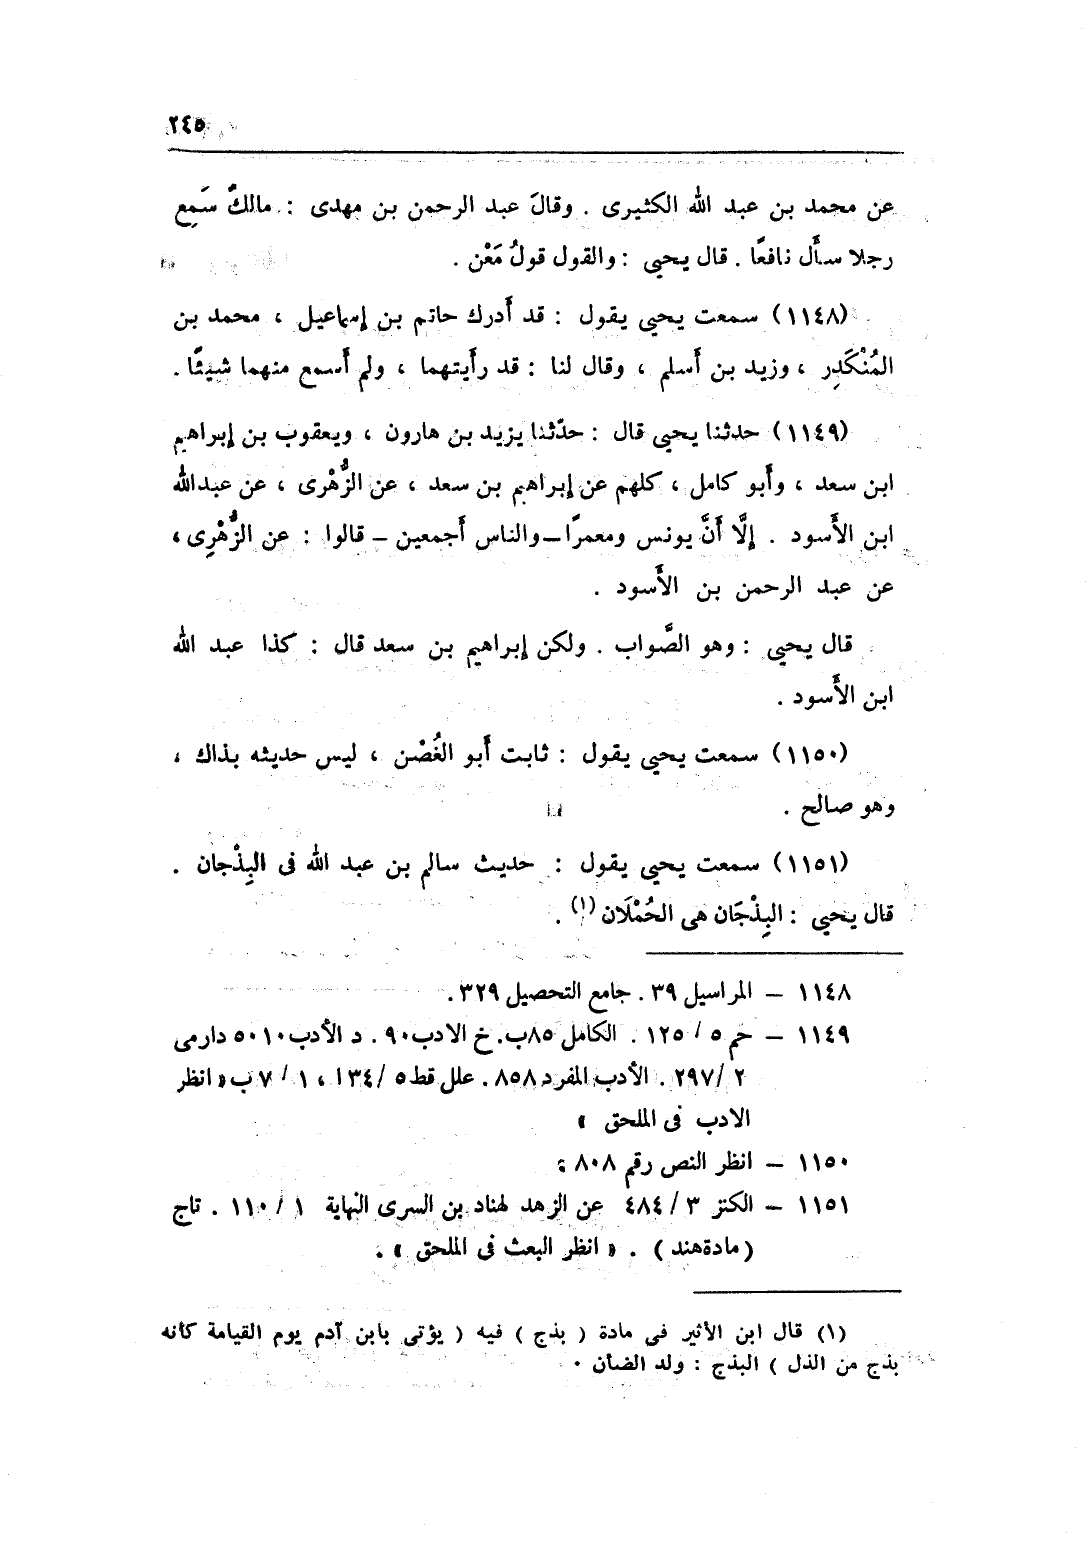 ٢٤٥
عن محمد بن عبد الله الكثيرى . وقالَ عبد الرحمن بن مهدى : مالكٌ سَمِع
رجلا سأَل نافعًا . قال يحيى : والقول قولُ مَعْن .
(١١٤٨) سمعت يحيى يقول : قد أَدرك حاتم بن إسماعيل ، محمد بن
المُنْكَدِر ، وزيد بن أَسلم ، وقال لنا : قد رأَيتهما ، ولم أَسمع منهما شيئًا .
(١١٤٩) حدثنا يحيى قال : حدّثنا يزيد بن هارون ، ويعقوب بن إبراهيم
ابن سعد ، وأَبو كامل ، كلهم عن إبراهيم بن سعد ، عن الزُّهْرى ، عن عبدالله
ابن الأَسود . إلَّا أَنَّ يونس ومعمرًا – والناس أَجمعين – قالوا : عن الزُّهْرِى ،
عن عبد الرحمن بن الأَسود .
قال يحيى : وهو الصَّواب . ولكن إبراهيم بن سعد قال : كذا عبد الله
ابن الأَسود .
(١١٥٠) سمعت يحيى يقول : ثابت أَبو الغُصْن ، ليس حديثه بذاك ،
وهو صالح .
(١١٥١) سمعت يحيى يقول : حديث سالم بن عبد الله فى البِذْجان .
قال يحيى : البِذْجَان هى الحُمْلَان (١) .
١١٤٨ – المراسيل ٣٩ . جامع التحصيل ٣٢٩ .
١١٤٩ – حم ٥ / ١٢٥ . الكامل ٨٥ب . خ الادب ٩٠ . د الأدب ٥٠١٠ دارمى
٢ / ٢٩٧ . الأدب المفرد ٨٥٨ . علل قط ٥ / ١٣٤ ، ١ / ٧ ب « انظر
الادب فى الملحق »
١١٥٠ – انظر النص رقم ٨٠٨ :
١١٥١ – الكنز ٣ / ٤٨٤ عن الزهد لهناد بن السرى النهاية ١ / ١١٠ . تاج
( مادة هند ) . « انظر البعث فى الملحق » .
(١) قال ابن الأثير فى مادة ( بذج ) فيه ( يؤتى بابن آدم يوم القيامة كأنه
بذج من الذل ) البذج : ولد الضأن .